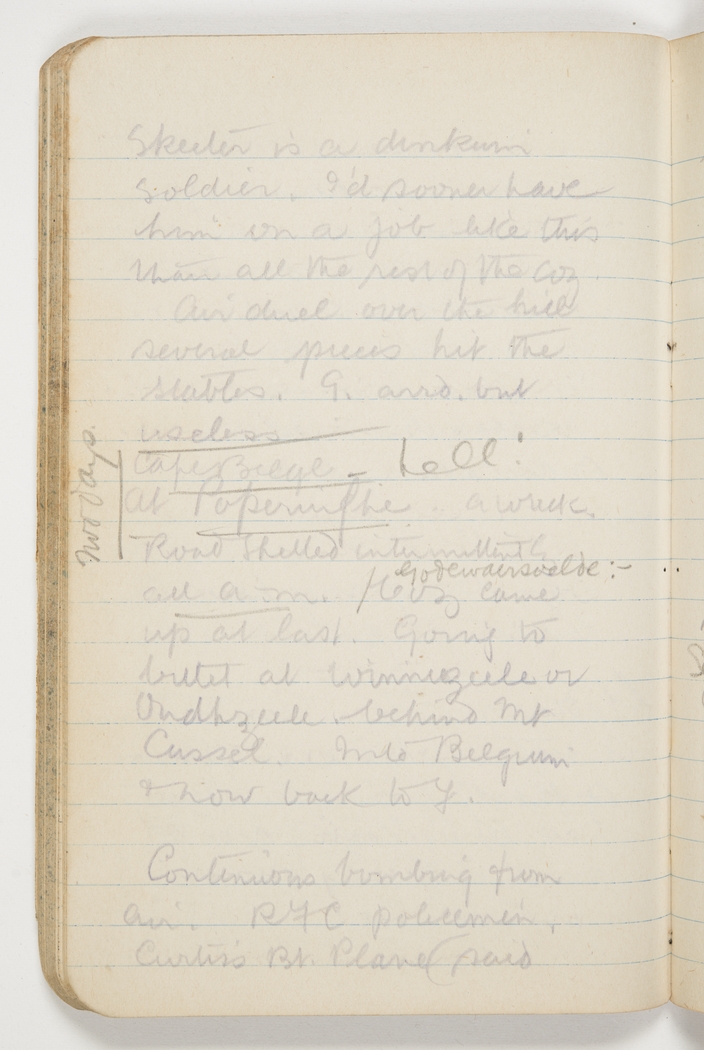 Skeeter is a dinkum
soldier. I'd sooner have
him on a job like this
than all the rest of the coy.
Air duel over the hill
several pieces hit the
stables. G. arrd. but
useless
Cafe Belge - hell!
Two days.
at Poperinghe a wreck.
Road shelled intermittently
Godewaersvelde :-
all a-m. Coy came
up at last. Going to
billet at Winnezeele or
Oudhzeele behind Mt
Cassel. Into Belgium
& now back to Y.
Continuous bombing from
air. RFC policemen.
Curtis's Bt. Plane (said